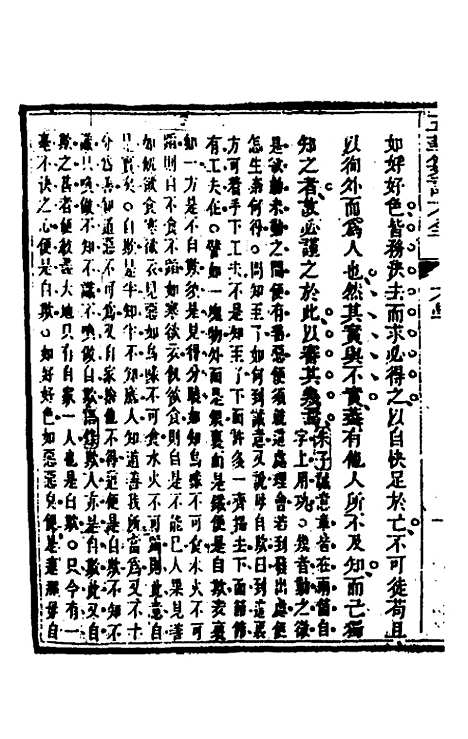 如好好色皆務決去而求必得之以自快足於己不可徒苟且
以徇外而為人也然其實與不實蓋有他人所不及知而己獨
知之者故必謹之於此以審其幾焉 朱子誠意章皆在兩箇自
字上用功○幾者動之微
是欲動未動之間便有善惡便須就這處理會若到發出處便
怎生奈何得○問知至了如何到誠意又說毋自欺曰到這裏
方可著手下工夫不是知至了下面許多一齊掃去下面節節
有工夫在○譬如一塊物外面是銀裏面是鐵便是自欺
如一方是不自欺須是見得分曉如知烏喙不可食水火不可
蹈則自不食不蹈如寒欲衣飢欲食則自是不能已人果見善
如飢欲食寒欲衣見惡如烏喙不可食水火不可蹈則此意自
是實矣○自欺是半知半不知底人知道善我所當為又不十
分為善知道惡不可為又自家捨他不得這便是自欺不知不
識只喚做不知不識不喚做自欺
欺之甚者便教盡大地只有自家一人也是自欺○只今有一
毫不快之心便是自欺○如好好色如惡惡臭便是